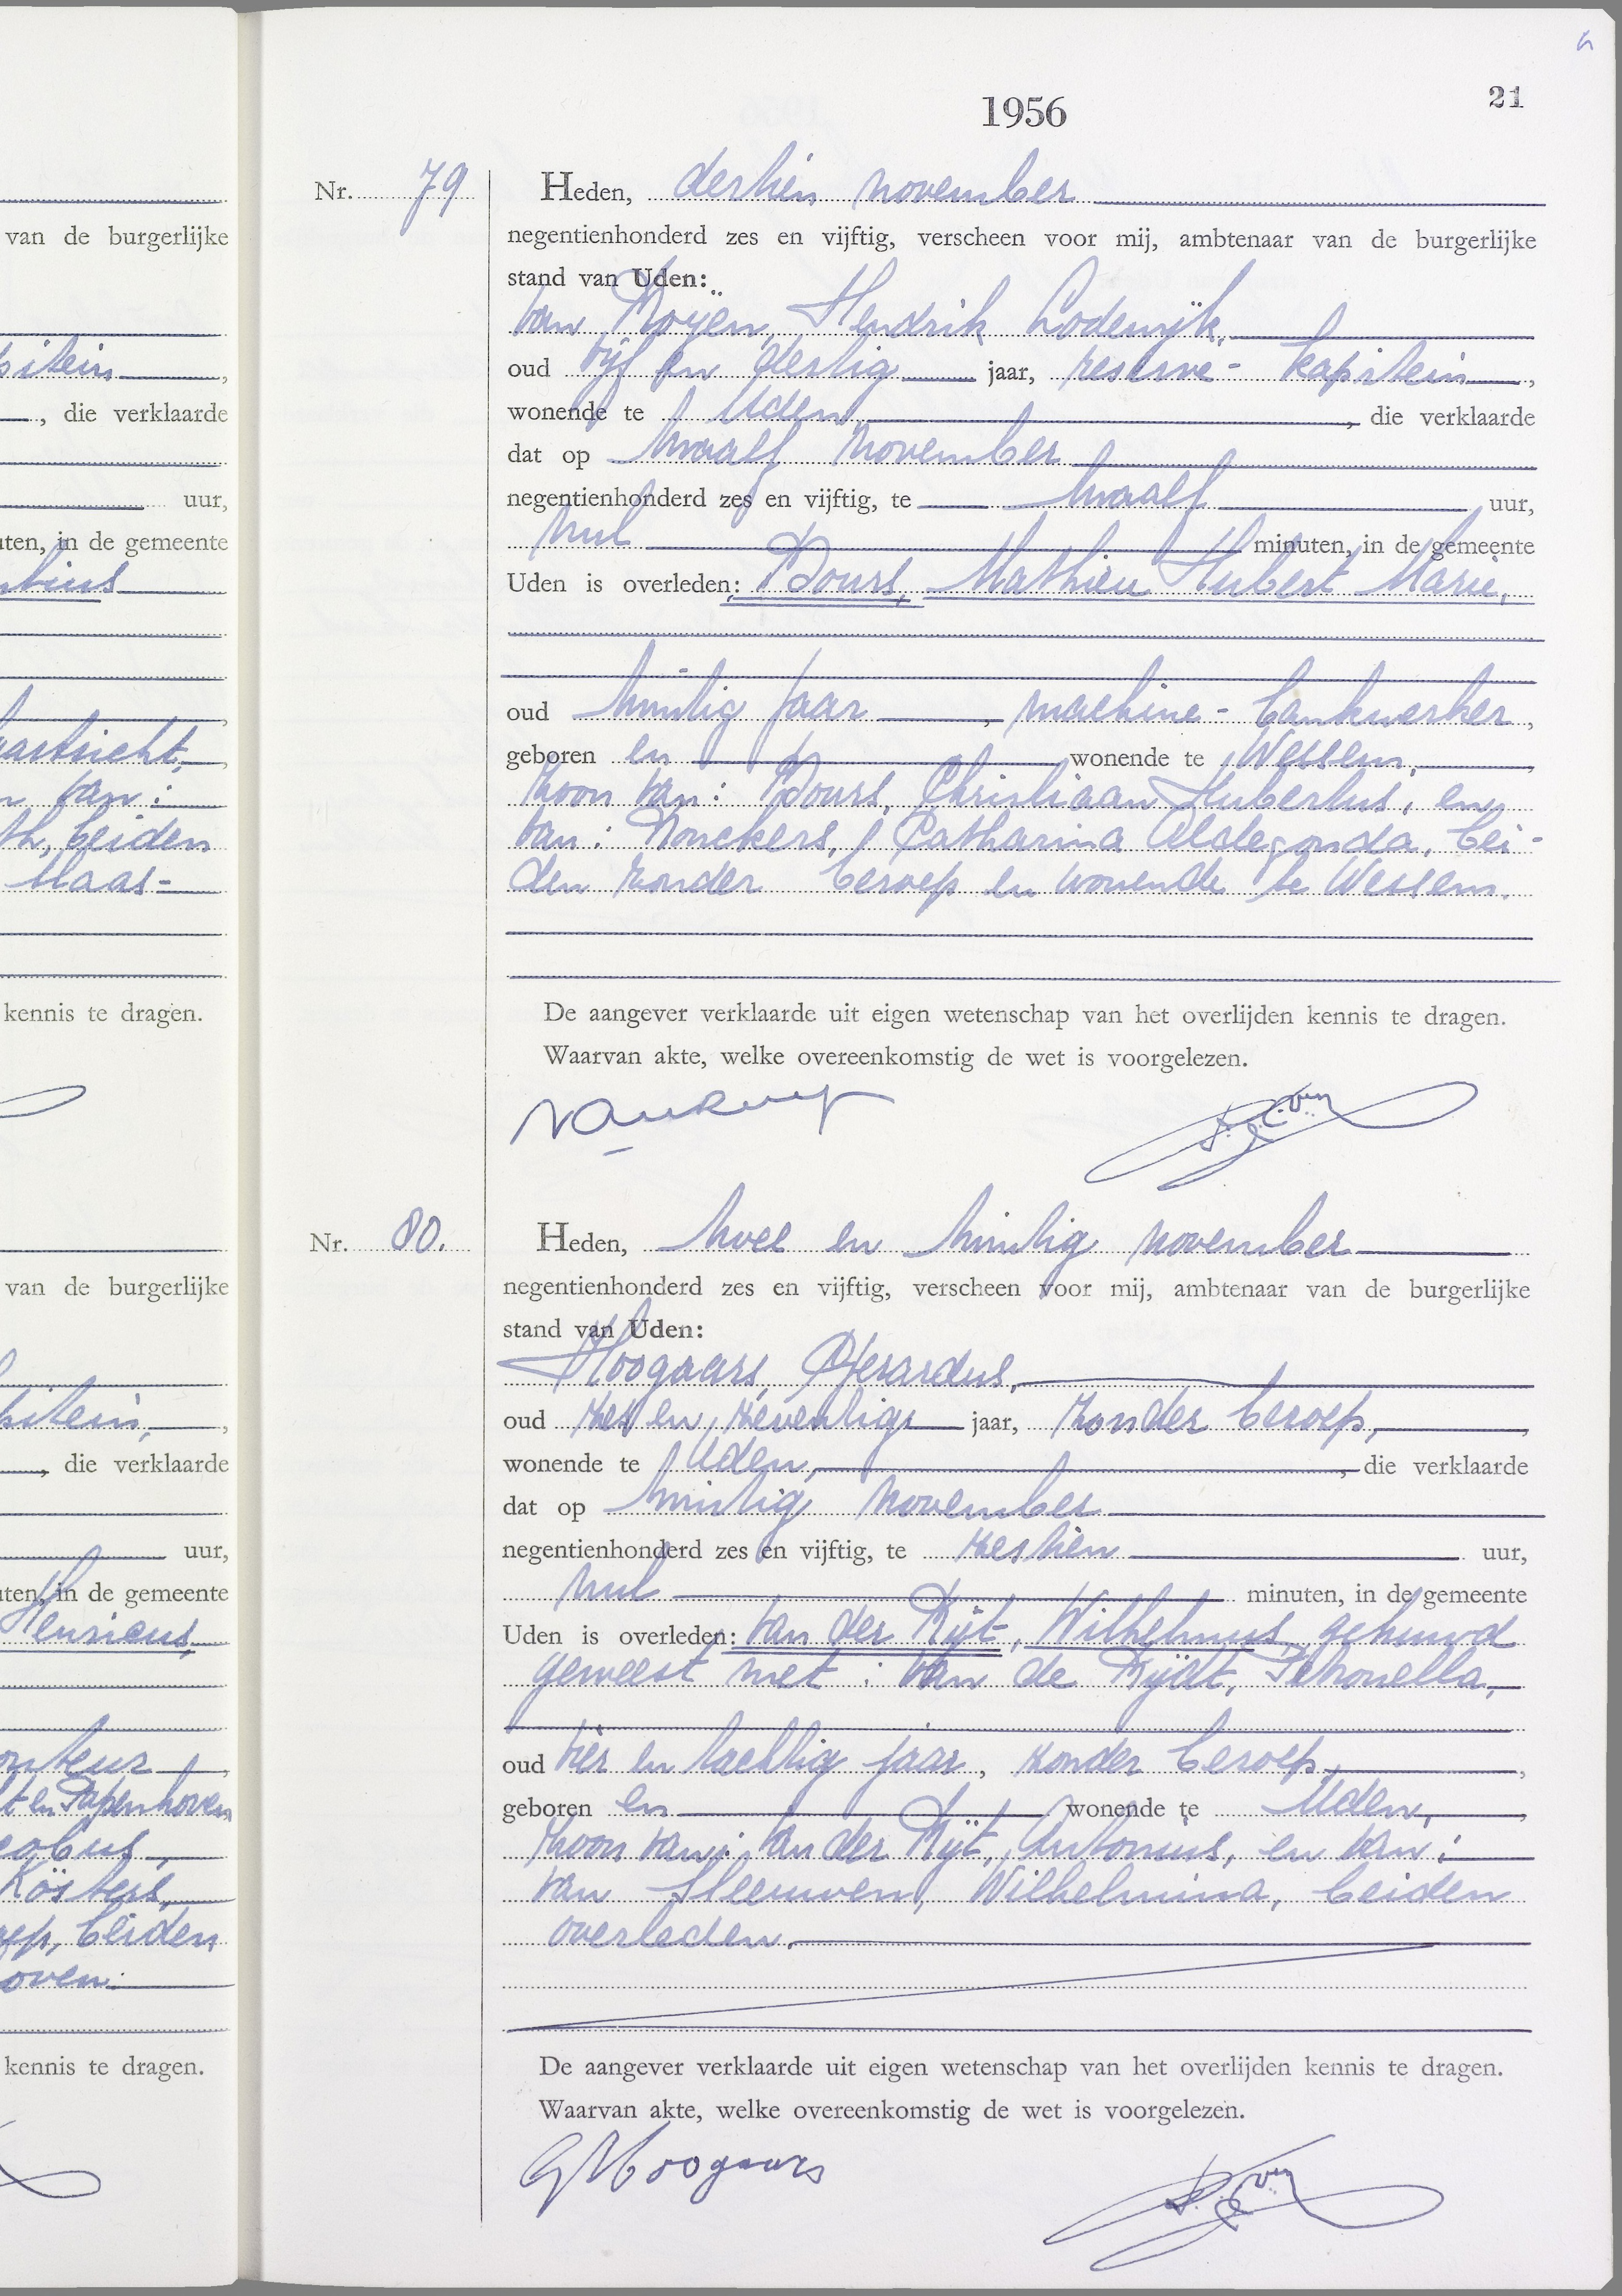 1956
21
van de burgerlijke
, die verklaarde
uur,
in de gemeente
astricht,
van:
beiden
Maas-
kennis te dragen.
van de burgerlijke
, die verklaarde
uur,
in de gemeente
Henricus,
en Papenhoven
Kösters,
beiden
oven.
kennis te dragen.
Nr. 79
Heden, dertien november
negentienhonderd zes en vijftig, verscheen voor mij, ambtenaar van de burgerlijke
stand van Uden:
van Royen, Hendrik Lodewijk,
oud vijf en dertig jaar, reserve- kapitein,
wonende te Uden, die verklaarde
dat op twaalf november
negentienhonderd zes en vijftig, te twaalf uur,
nul minuten, in de gemeente
Uden is overleden: Bours, Mathieu Hubert Marie,
oud twintig jaar, machine- bankwerker,
geboren en wonende te Wessem,
zoon van: Bours, Christiaan Hubertus, en
van: Ronckers, Catharina Aldegonda, bei-
den zonder beroep en wonende te Wessem.
De aangever verklaarde uit eigen wetenschap van het overlijden kennis te dragen.
Waarvan akte, welke overeenkomstig de wet is voorgelezen.
Nr. 80.
Heden, twee en twintig november
negentienhonderd zes en vijftig, verscheen voor mij, ambtenaar van de burgerlijke
stand van Uden:
Hoogaars, Gerardus,
oud zes en zeventig jaar, zonder beroep,
wonende te Uden, die verklaarde
dat op twintig november
negentienhonderd zes en vijftig, te zestien uur,
nul minuten, in de gemeente
Uden is overleden: van der Rijt, Wilhelmus, gehuwd
geweest met: van de Rijdt, Petronella,
oud vier en tachtig jaar, zonder beroep,
geboren en wonende te Uden,
zoon van: van der Rijt, Antonius, en van:
van Sleeuwen, Wilhelmina, beiden
overleden.
De aangever verklaarde uit eigen wetenschap van het overlijden kennis te dragen.
Waarvan akte, welke overeenkomstig de wet is voorgelezen.
G Hoogaars